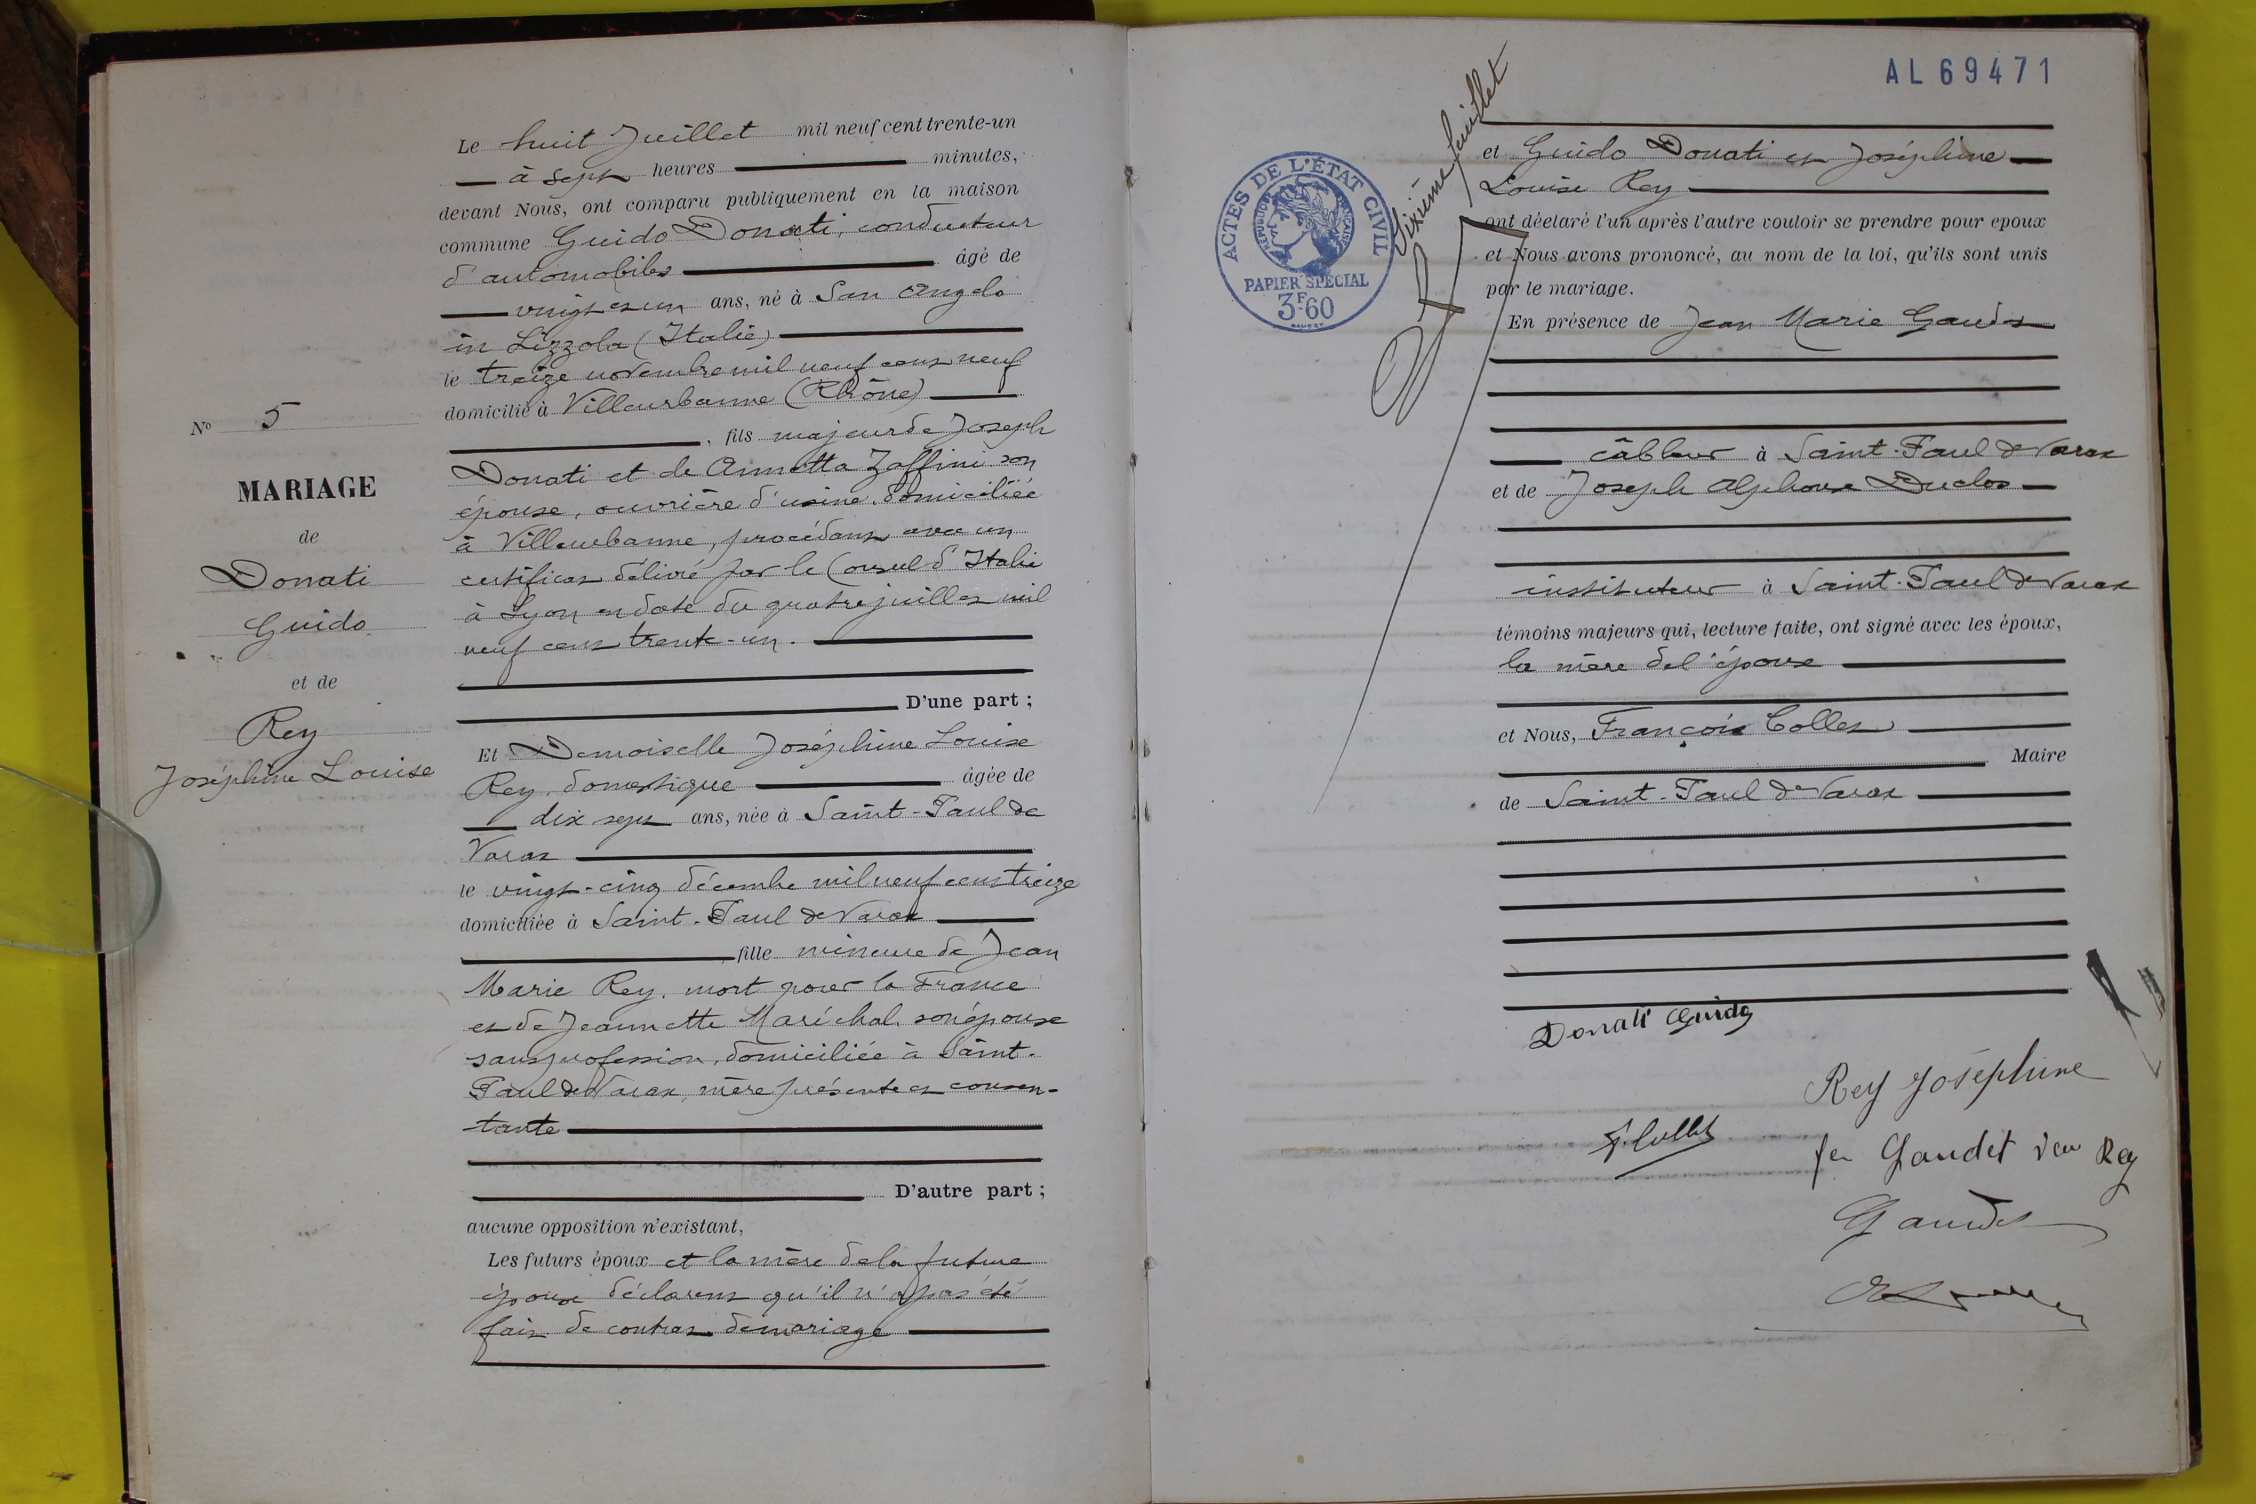 Nº 5
MARIAGE
de
Donati
Guido
et de
Rey
Joséphine Louise
Le huit Juillet mil neuf cent trente-un
à sept heures minutes,
devant Nous, ont comparu publiquement en la maison
commune Guido Donati, conducteur
d'automobiles âgé de
vingt et un ans, né à San Angelo
in Lizzola (Italie)
le treize novembre mil neuf cent neuf
domicilié à Villeurbanne (Rhône)
, fils majeur de Joseph
Donati et de Annetta Zaffini son
épouse, ouvrière d'usine, domiciliée
à Villeurbanne, procédant avec un
certificat délivré par le Consul d'Italie
à Lyon en date du quatre juillet mil
neuf cent trente-un.
D'une part ;
Et Demoiselle Joséphine Louise
Rey, domestique âgée de
dix sept ans, née à Saint-Paul de
Varax
le vingt-cinq décembre mil neuf cent treize
domiciliée à Saint-Paul de Varax
fille mineure de Jean
Marie Rey, mort pour la France
et de Jeannette Maréchal, son épouse
sans profession, domiciliée à Saint-
Paul de Varax, mère présente et consen-
tante
D'autre part ;
aucune opposition n'existant,
Les futurs époux et la mère de la future
épouse déclarent qu'il n'a pas été
fait de contrat de mariage
AL 69471
Sixième feuillet
ACTES DE L'ÉTAT CIVIL
RÉPUBLIQUE FRANÇAISE
PAPIER SPÉCIAL
3F60
et Guido Donati et Joséphine
Louise Rey
ont déclaré l'un après l'autre vouloir se prendre pour epoux
et Nous avons prononcé, au nom de la loi, qu'ils sont unis
par le mariage.
En présence de Jean Marie Gaudet
câbleur à Saint-Paul de Varax
et de Joseph Alphonse Duclos
instituteur à Saint-Paul de Varax
témoins majeurs qui, lecture faite, ont signé avec les époux,
la mère de l'épouse
et Nous, François Collet
Maire
de Saint-Paul de Varax
Donati Guido
Rey Joséphine
F. Collet
Gaudet veu Rey
Gaudet